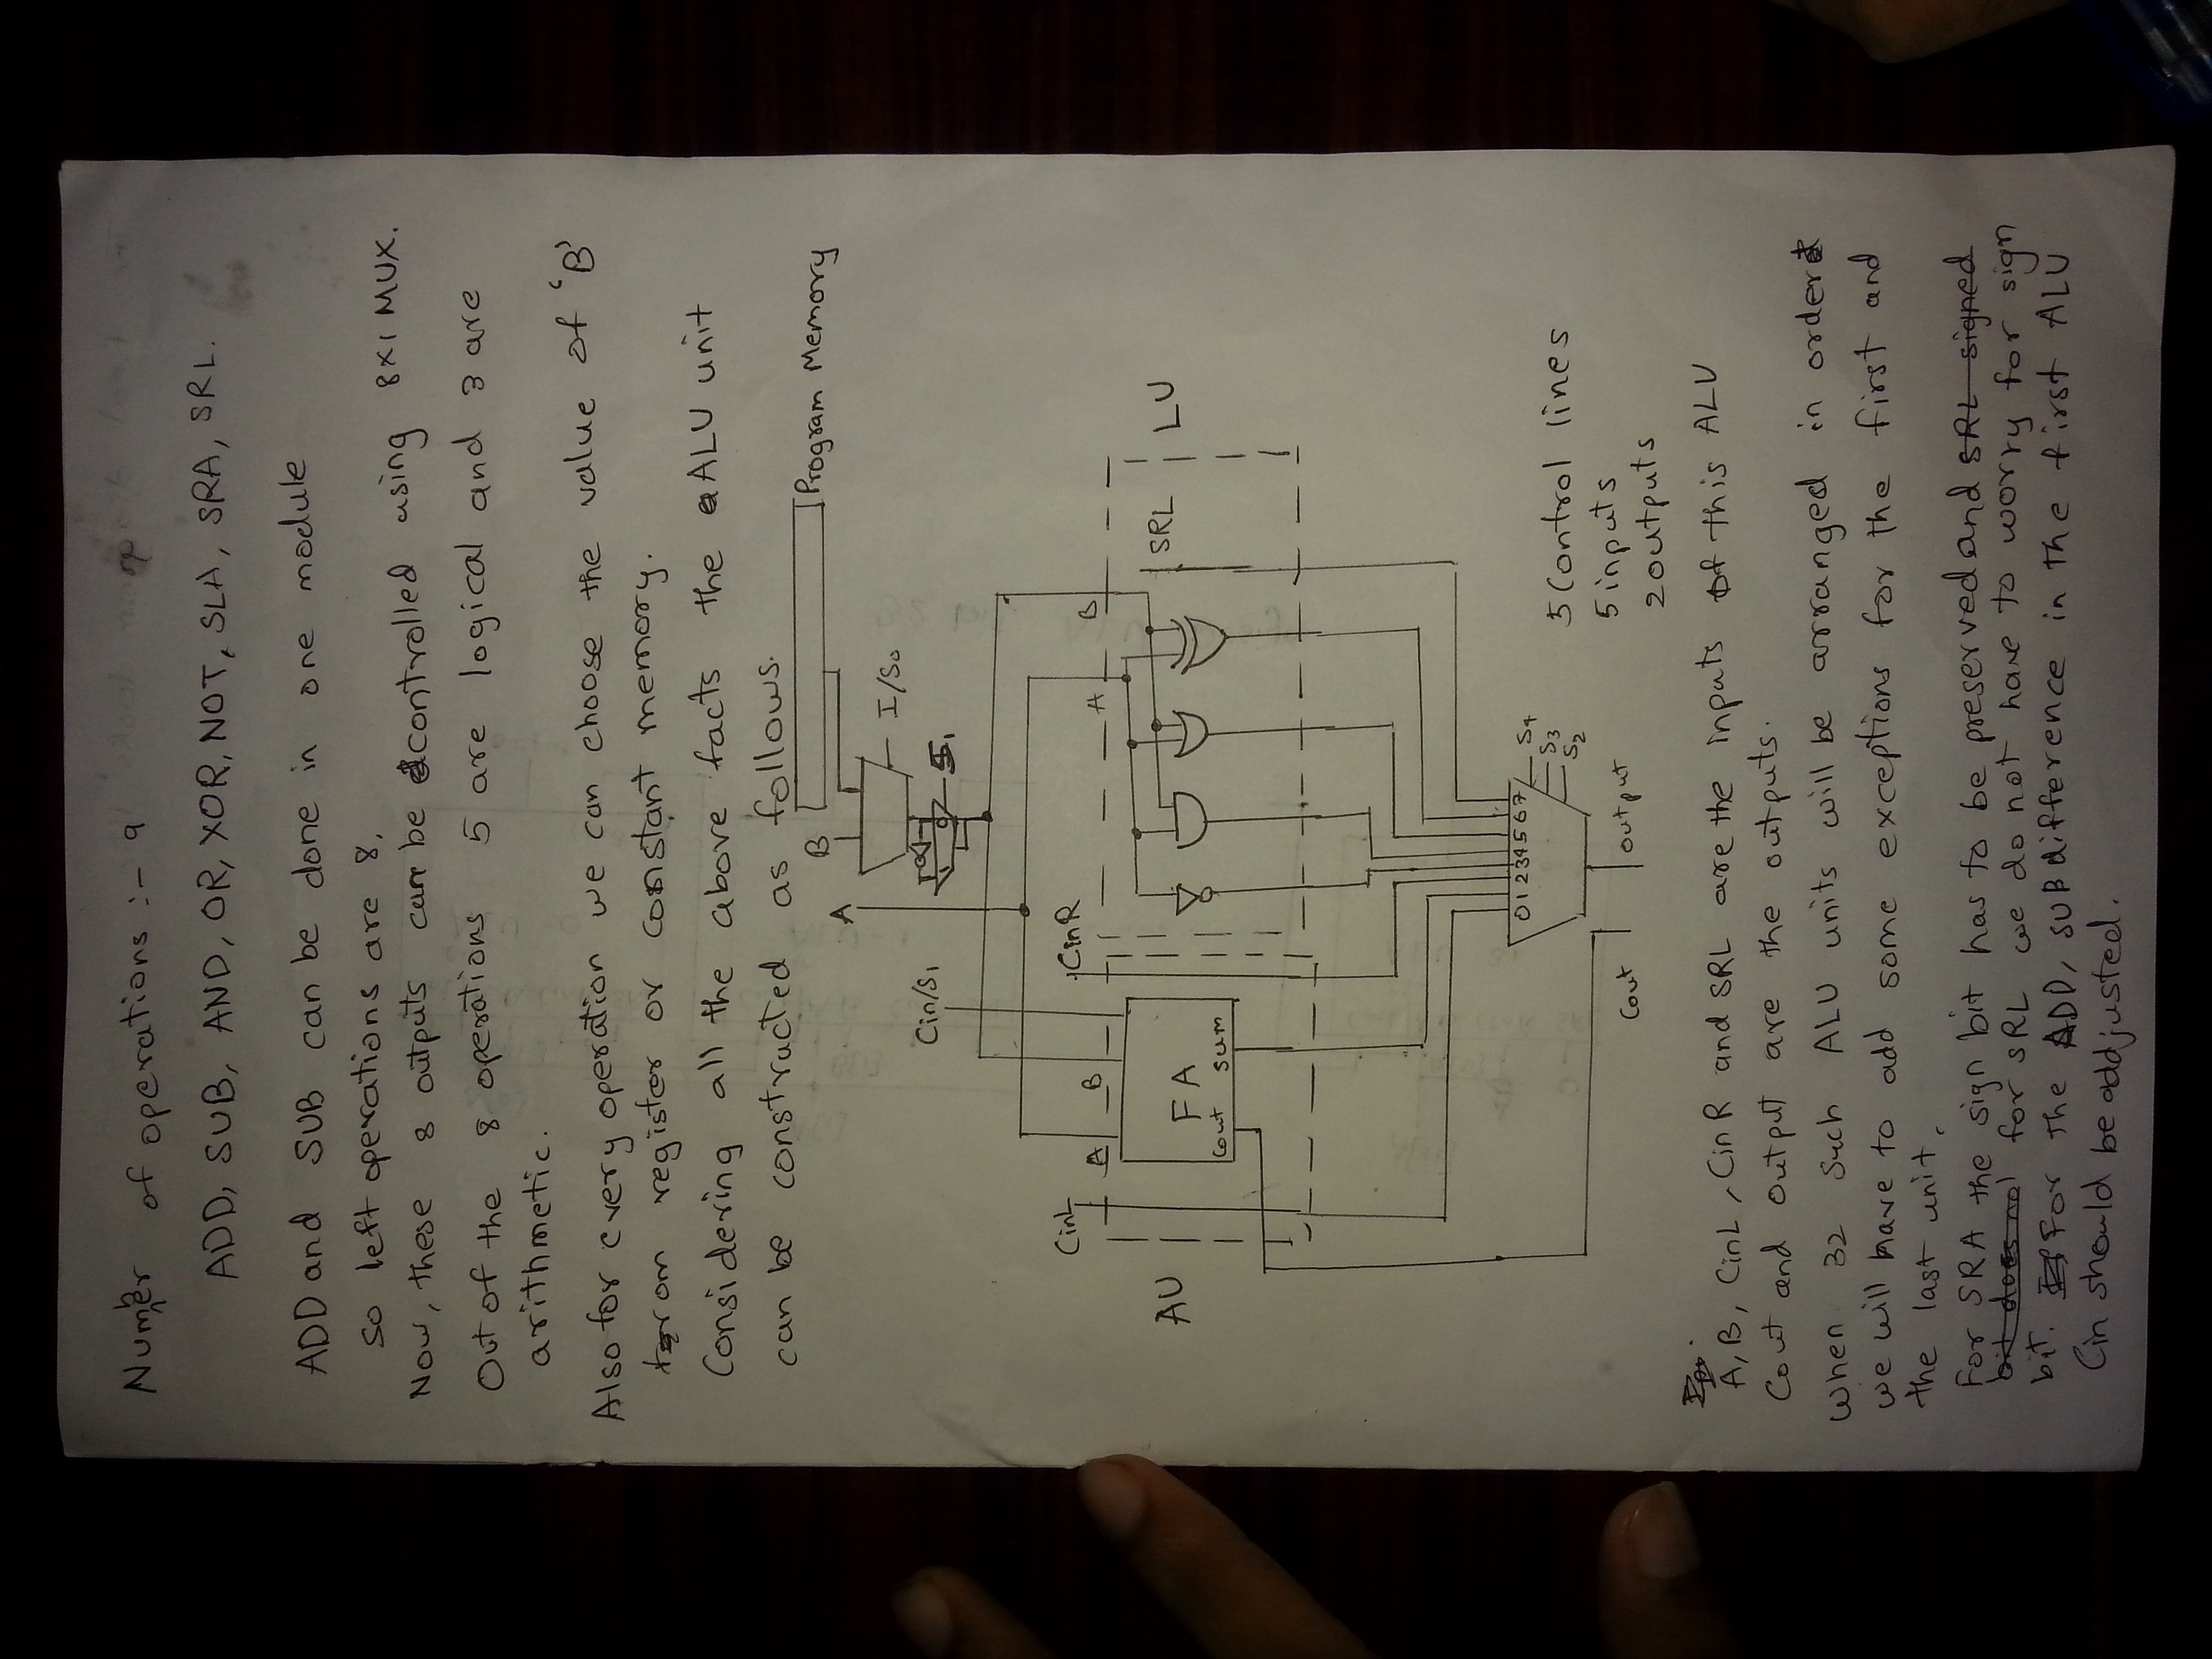 Number of operations :- 9
ADD, SUB, AND, OR, XOR, NOT, SLA, SRA, SRL.
ADD and SUB can be done in one module
so left operations are 8,
Now, these 8 outputs can be controlled using 8x1 MUX.
Out of the 8 operations 5 are logical and 3 are
arithmetic.
Also for every operation we can choose the value of 'B'
from register or constant memory.
Considering all the above facts the ALU unit
can be constructed as follows.
B Program Memory
A
I/S0
Cin/S1
S1
CinL CinR
A B A B
AU FA SRL LU
Cout sum
0 1 2 3 4 5 6 7
S4
S3
S2
Cout output
5 Control lines
5 inputs
2 outputs
A, B, CinL, CinR and SRL are the inputs of this ALU
Cout and output are the outputs.
When 32 such ALU units will be arranged in order
we will have to add some exceptions for the first and
the last unit.
For SRA the sign bit has to be preserved and SRL signed
bit does not for SRL we do not have to worry for sign
bit. For the ADD, SUB difference in the first ALU
Cin should be addjusted.